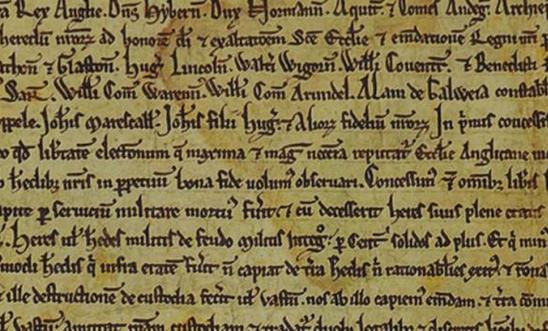 Rex Anglie. Dns Hybern. Dux Normann. Aquit. & Comes Andeg. Archiep
heredū nrorū ad honorē di & exaltacoem Sce Ecclie & emdatione Regni nri
& Glaston. Hug Lincoln. Walti Wigorn. Willi Coventr. & Benedicti
Sarr. Willi Com Warenn. Willi Com Arundel. Alani de Galweia constabl
ppele. Johis Marescall. Johis filii Hug. & Alior fideliū nror. In pmis concessi
qd libtate electionum q maxima & mag necia reputat Ecclie Anglicane
hedib nris in ppetuū bona fide volum observari. Concessim & omib libis
capite p servicium militare mortuus fuit & cū decesserit heres suus plene etatis
Heres ul hedes militis de feudo militis integ. p Centū solidos ad plus. Et q min
modi hedis q infra etatē fuit n capiat de tra hedis n rationabiles
& ille destructione de custodia fecit ul vastū. nos ab illo capiem emdam. & tra
vastū. amittat custodiam & tradat duob legalib & discretis